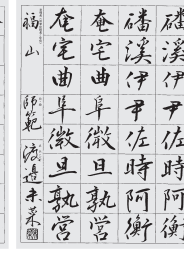 磻溪伊尹佐時阿衡
磻溪伊尹佐時阿衡
奄宅曲阜微旦孰営
奄宅曲阜微旦孰営
福山 師範 渡邉未菜